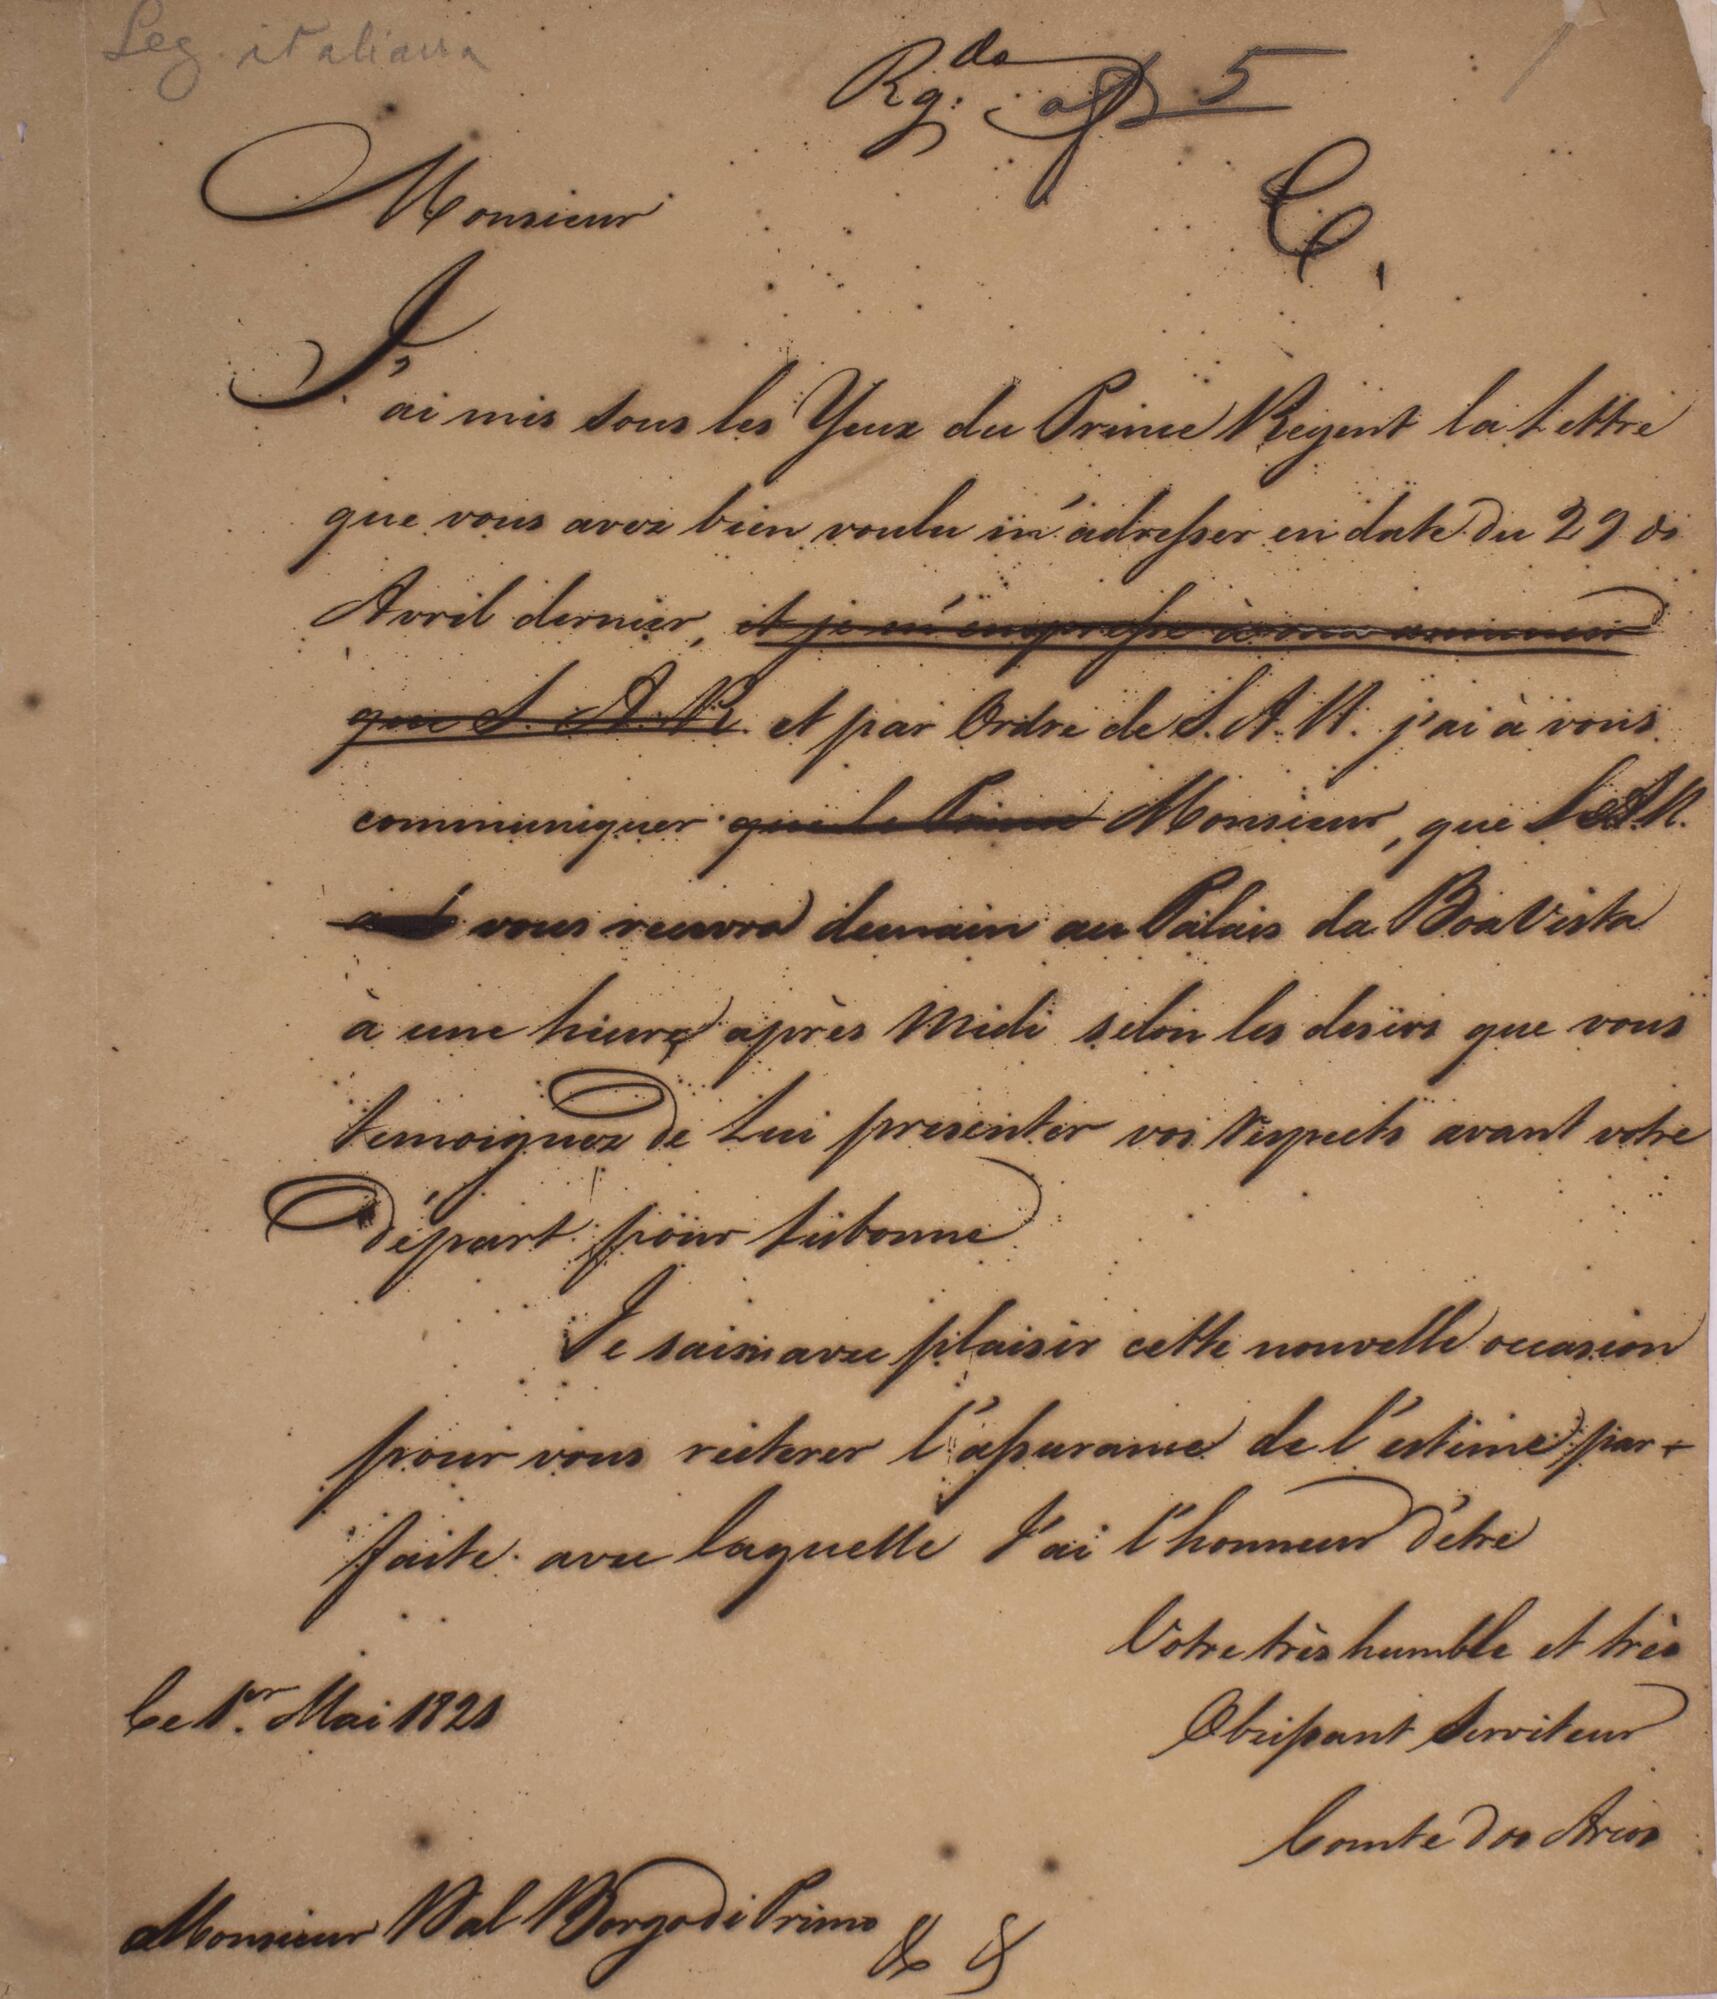 Leg. italiana
Rg.da a f 5
C.
Monsieur
J'ai mis sous les Yeux du Prince Regent la Lettre
que vous avez bien voulu m'adresser en date du 29 di
Avril dernier, et je m'empresse à vous annoncer
que S. A. R. et par Ordre de S. A. R. j'ai à vous
communiquer que le Prince Monsieur, que S. A. R.
vous recevra demain au Palais da Boa Vista
à une hieure après Midi selon les desirs que vous
temoignez de Lui presenter vos Respects avant votre
départ pour Lisbonne
Je saisis avec plaisir cette nouvelle occasion
pour vous reiterer l'assurance de l'estime par-
faite avec laquelle J'ai l'honneur d'être
Votre très humble et très
Obeissant Serviteur
Comte dos Arcos
Le 1.er Mai 1821
Monsieur Dal Borgo di Primo & &